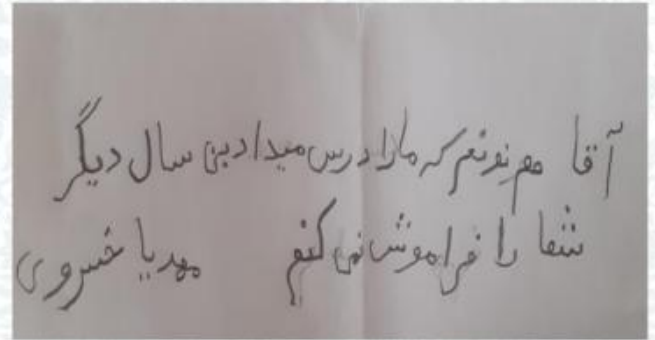 آقا مم نونم که مارا درس میدادین سال دیگر
شما را فراموش نمی کنم مهدیا خسروی